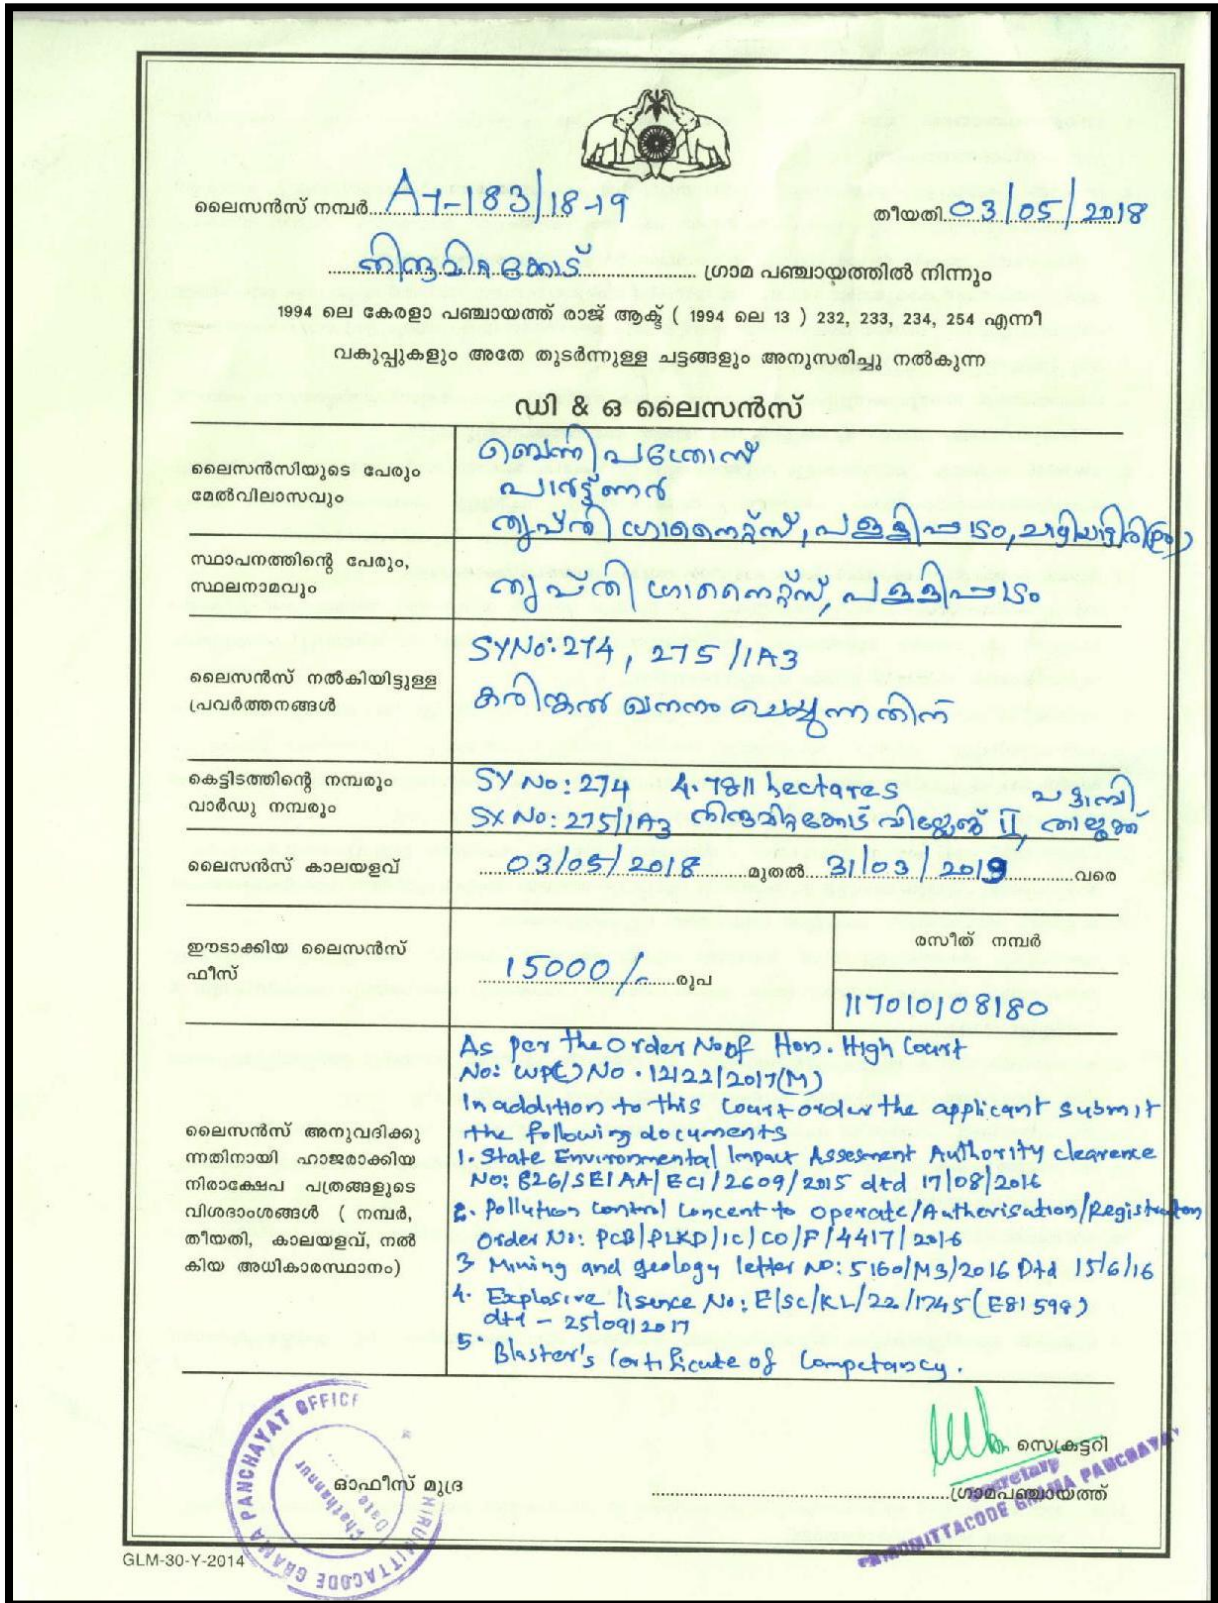 ലൈസൻസ് നമ്പർ A7-183/18-19 തീയതി 03/05/2018
തിരുമിറ്റക്കോട് ഗ്രാമ പഞ്ചായത്തിൽ നിന്നും
1994 ലെ കേരളാ പഞ്ചായത്ത് രാജ് ആക്ട് ( 1994 ലെ 13 ) 232, 233, 234, 254 എന്നീ
വകുപ്പുകളും അതേ തുടർന്നുള്ള ചട്ടങ്ങളും അനുസരിച്ചു നൽകുന്ന
ഡി & ഒ ലൈസൻസ്
ലൈസൻസിയുടെ പേരും
മേൽവിലാസവും
ബെന്നി പത്രോസ്
പാർട്ട്ണർ
തൃപ്തി ഗ്രാനൈറ്റ്സ്, പള്ളിപ്പാടം,
സ്ഥാപനത്തിന്റെ പേരും,
സ്ഥലനാമവും
തൃപ്തി ഗ്രാനൈറ്റ്സ്, പള്ളിപ്പാടം
ലൈസൻസ് നൽകിയിട്ടുള്ള
പ്രവർത്തനങ്ങൾ
SYNo: 274, 275/1A3
കരിങ്കൽ ഖനനം ചെയ്യുന്നതിന്
കെട്ടിടത്തിന്റെ നമ്പരും
വാർഡു നമ്പരും
SY No: 274 4.7811 hectares പട്ടാമ്പി
SY No: 275/1A3 തിരുമിറ്റക്കോട് വില്ലേജ് II, താലൂക്ക്
ലൈസൻസ് കാലയളവ് 03/05/2018 മുതൽ 31/03/2019 വരെ
ഈടാക്കിയ ലൈസൻസ്
ഫീസ്
15000/- രൂപ
രസീത് നമ്പർ
117010108180
ലൈസൻസ് അനുവദിക്കു
ന്നതിനായി ഹാജരാക്കിയ
നിരാക്ഷേപ പത്രങ്ങളുടെ
വിശദാംശങ്ങൾ ( നമ്പർ,
തീയതി, കാലയളവ്, നൽ
കിയ അധികാരസ്ഥാനം)
As per the Order No of Hon. High Court
No: WP(C) No. 12122/2017(M)
In addition to this Court order the applicant submit
the following documents
1. State Environmental Impact Assesment Authority clearence
No: 826/SEIAA/EC1/2609/2015 dtd 17/08/2016
2. Pollution Control Concent to Operate/Autherisation/Registration
Order No: PCB/PLKD/IC/CO/F/4417/2016
3 Mining and geology letter No: 5160/M3/2016 Dtd 15/6/16
4. Explosive lisence No: E/SC/KL/22/1745(E81598)
dtd - 25/09/2017
5. Blaster's Certificate of Competancy.
THIRUMITTACODE GRAMA PANCHAYAT OFFICE
Date
Chathannur
ഓഫീസ് മുദ്ര
സെക്രട്ടറി
ഗ്രാമപഞ്ചായത്ത്
Secretary
THIRUMITTACODE GRAMA PANCHAYAT
GLM-30-Y-2014